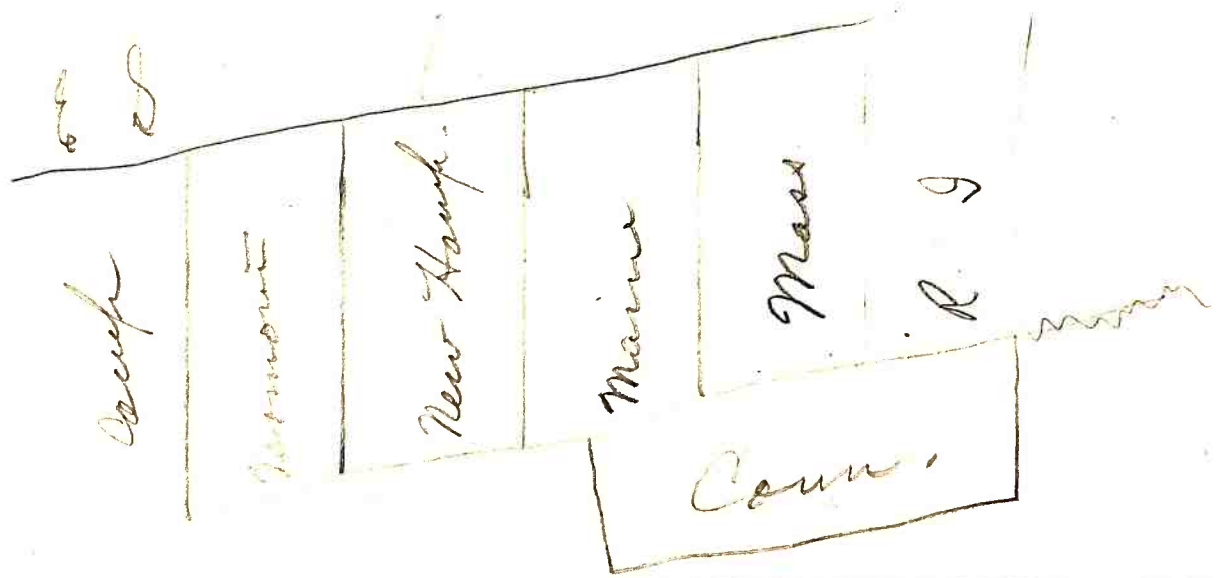 E S
Camp
Vermont
New Hamp.
Maine
Mass
R I
Conn.